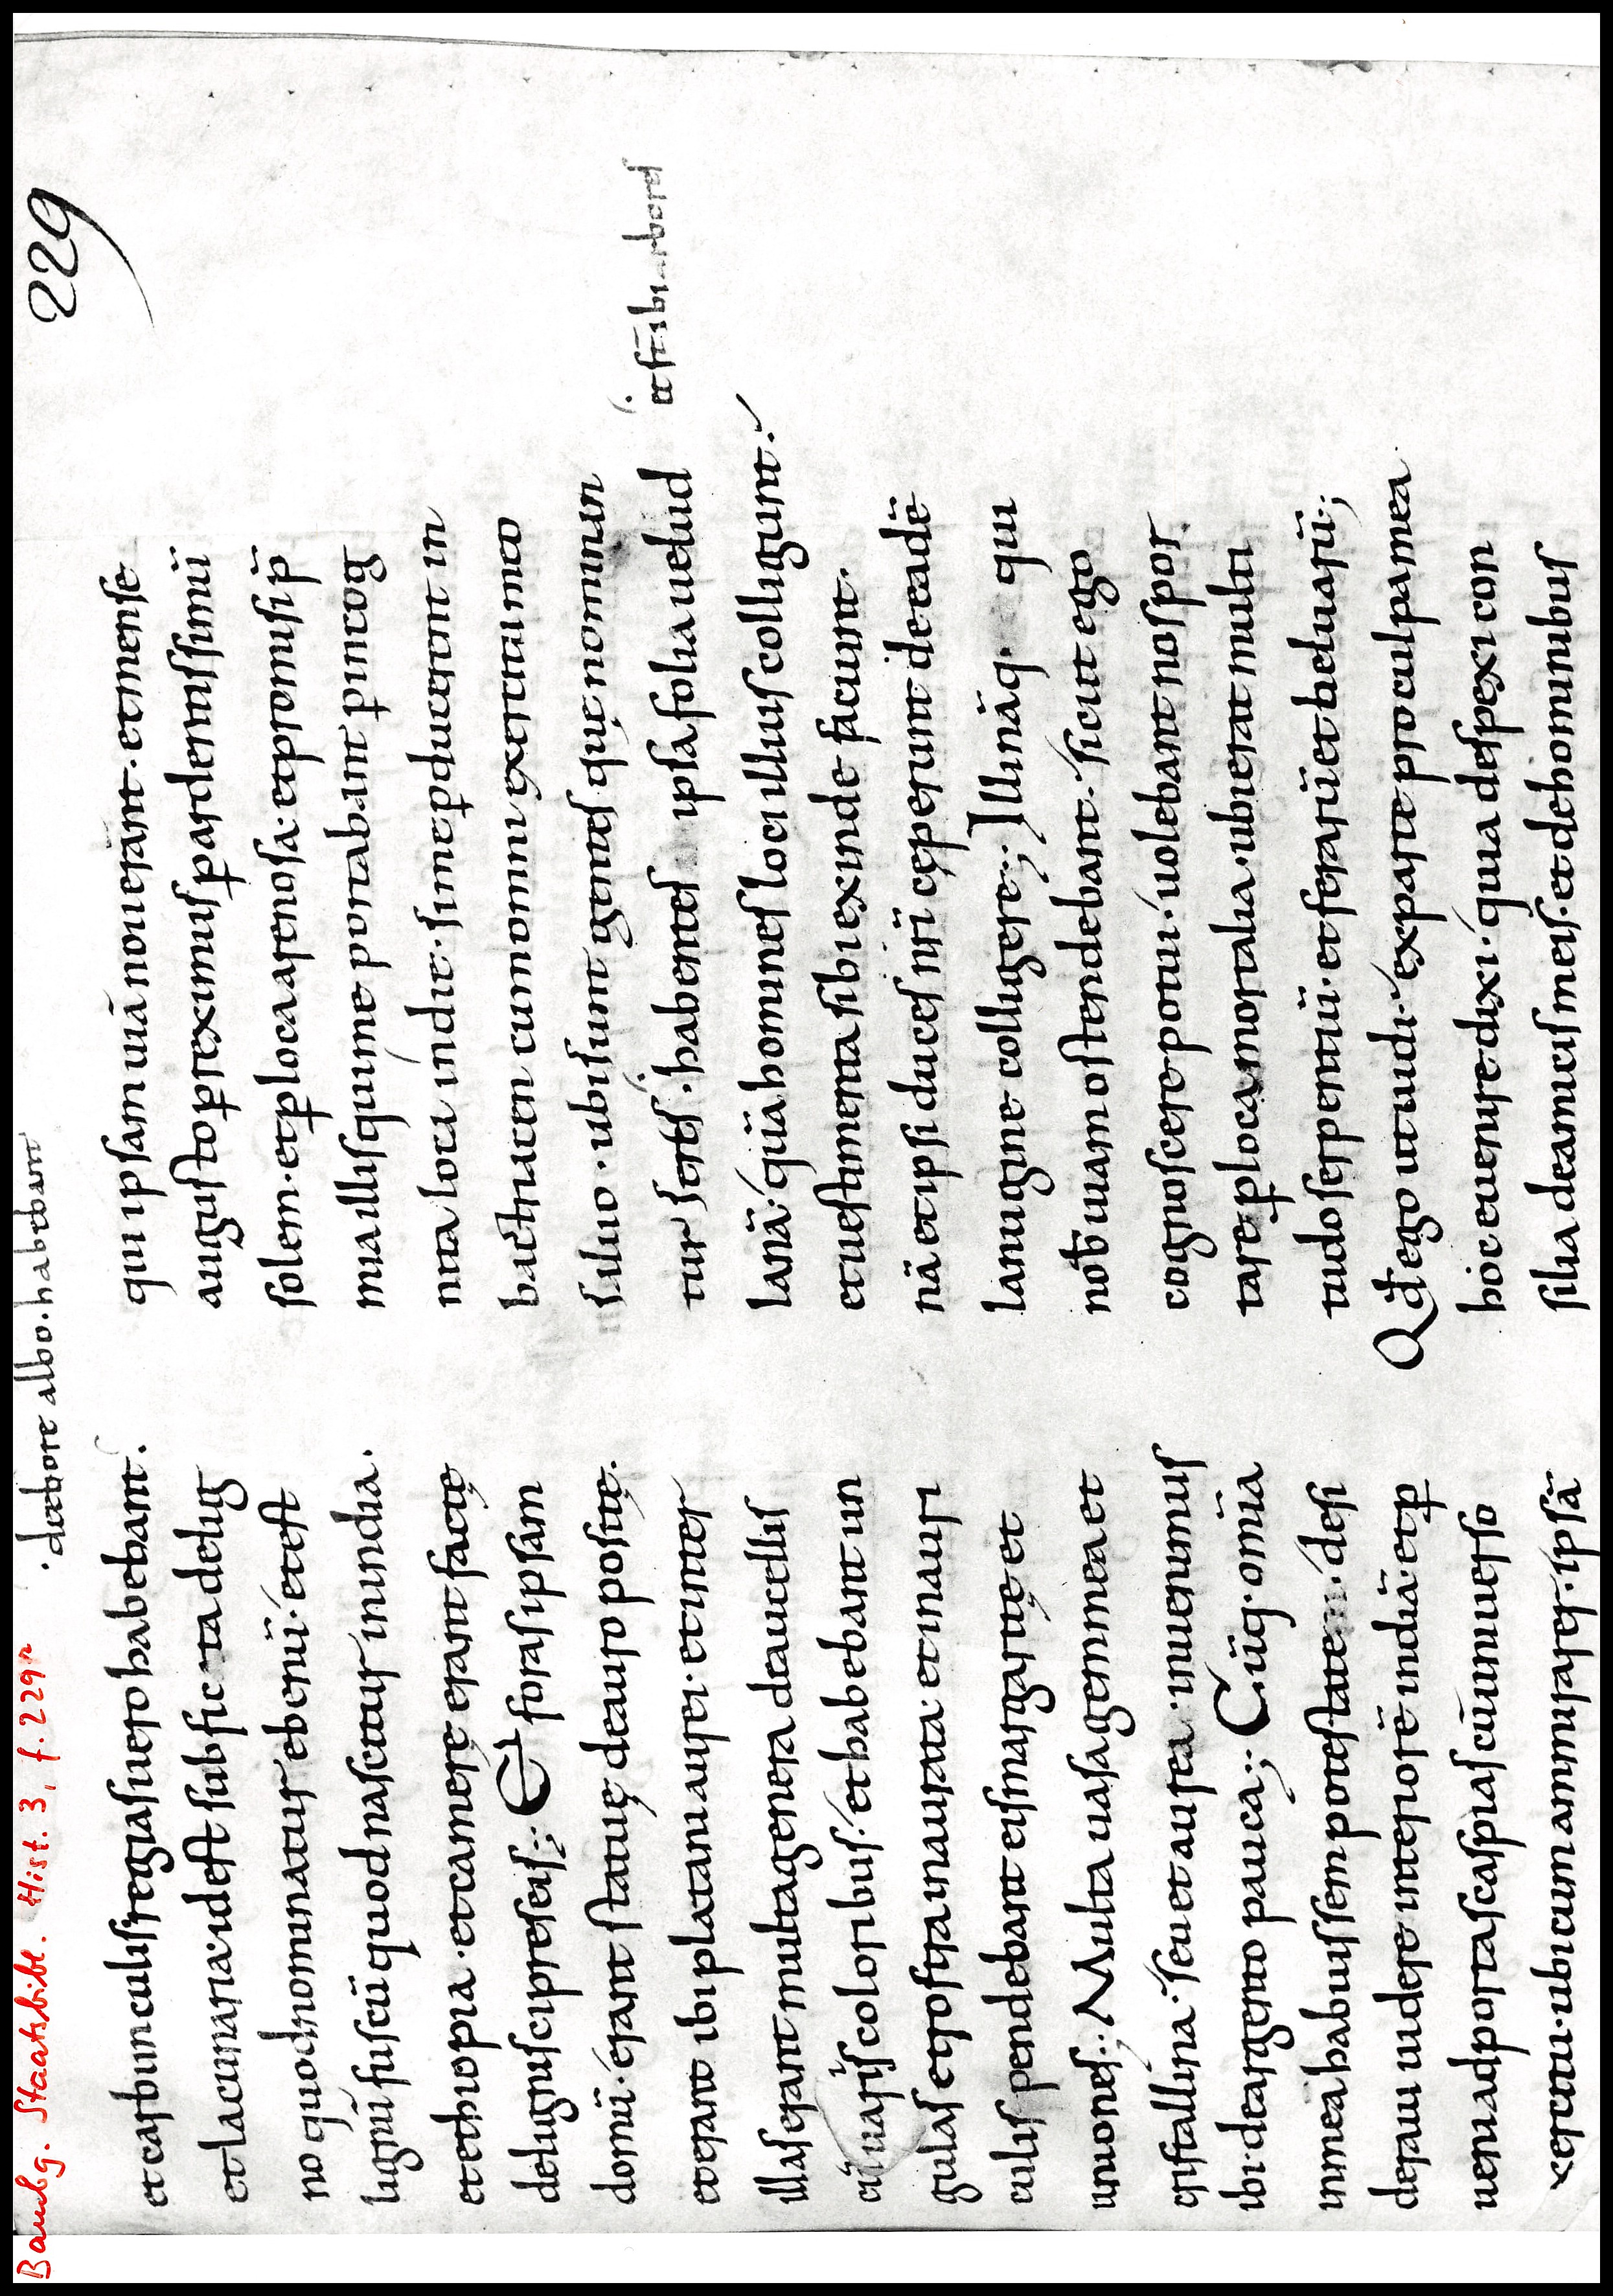 Bambg. Staatsbibl. Hist. 3, f. 229r
229
·deebore albo·habebant
et carbunculis regias uero habebant.
et lacunaria·idest subfic ta delig
no quod nominatur ebenũ·et est
lignũ fuscũ quod nascitur inindia.
et ethiopia·et camerę erant factę
delignis cipreseis;; Et foras ipsam
domũ·erant statuę deauro positę.
et erant ibi platani aurei·et inter
illas erant multa genera deaucellis
cũ uarijs coloribus·et habebant un
gulas et rostra inaurata·et inauri
culis pendebant eis margaritę et
uniones;. Multa uasa gemmea et
cristallina·seu et aurea·inuenimus
ibi·deargento pauca;; Cũq· omĩa
inmea habuissem potestatem·desi
deraui uidere interiorẽ indiã·et p̱
ueni ad portas caspias cũ uniuerso
exercitu·ubi cum ammirarer·ipsã
qui ipsam uiã nouerant·et mense
augusto p̱reximus p̱ ardentissimũ
solem·et p̱ loca arenosa·et promisi p̄
mia illis qui me portabant p̱ incog
nita loca indię·si me p̱ducerent in
bactriacen cum omni exercitu meo
saluo·ubi sunt gentes quę nominan
tur seres·habentes ipsa folia uelud
et sĩ ibi arbores
lanã·quã homines loci illius colligunt·
et uestimenta sibi exinde faciunt·
nã et ipsi duces nr̃i cęperunt de eadẽ
lanugine colligere;; Illinãq· qui
nob̃ uiam ostendebant·sicut ego
cognoscere potui·uolebant nos por
tare p̱ loca mortalia·ubi erat multi
tudo serpentiũ·et ferarũ et beluarũ;;
Qđ ego ut uidi·exparte pro culpa mea
hoc euenire dixi·quia despexi con
silia deamicis meis·et de hominibus